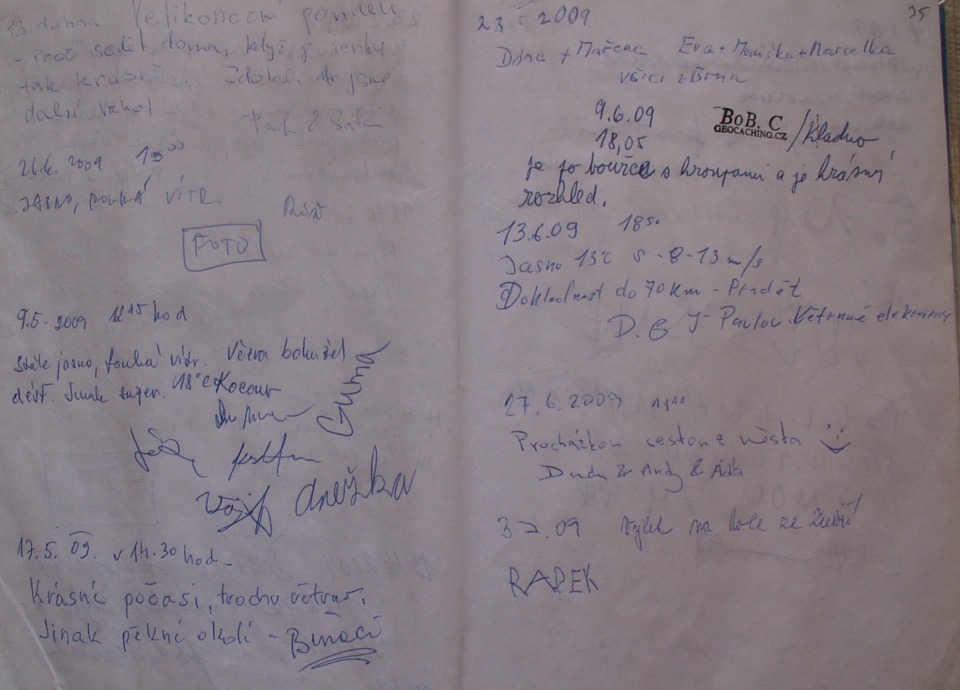 13. dubna Velikonoční pondělí
- Proč sedět doma, když je venku
tak krásně. Zdolali jsme
další vrchol
26.4. 2009 15⁰⁰
JASNO, FOUKÁ VÍTR.
FOTO
9.5. 2009 hod
Stále jasno, fouká vítr. Včera bohužel
déšť. Jinak super. 18°C Kocour
Guma
dnežka
17.5. 09. v 14.30 hod-
Krásné počasí, trochu větrno.
Jinak pěkné okolí - Brňáci
35
23. 5. 2009
Dáša + Mařena Eva + Monička + Marcelka
všici z Brna
9.6.09
18,05
BoB. C
GEOCACHING.CZ
/Kladno
je po bouřce s kroupami a je krásný
rozhled.
13.6.09 18⁵⁰
Jasno 13°C S - 8-13 m/s
Dohlednost do 70 km - Praděd
D. G J- Pavlov. Větrné elektrárny
27.6.2009
Procházkou cestou z města
& Andy &
3-7.09 Výlet na kole ze
RADEK